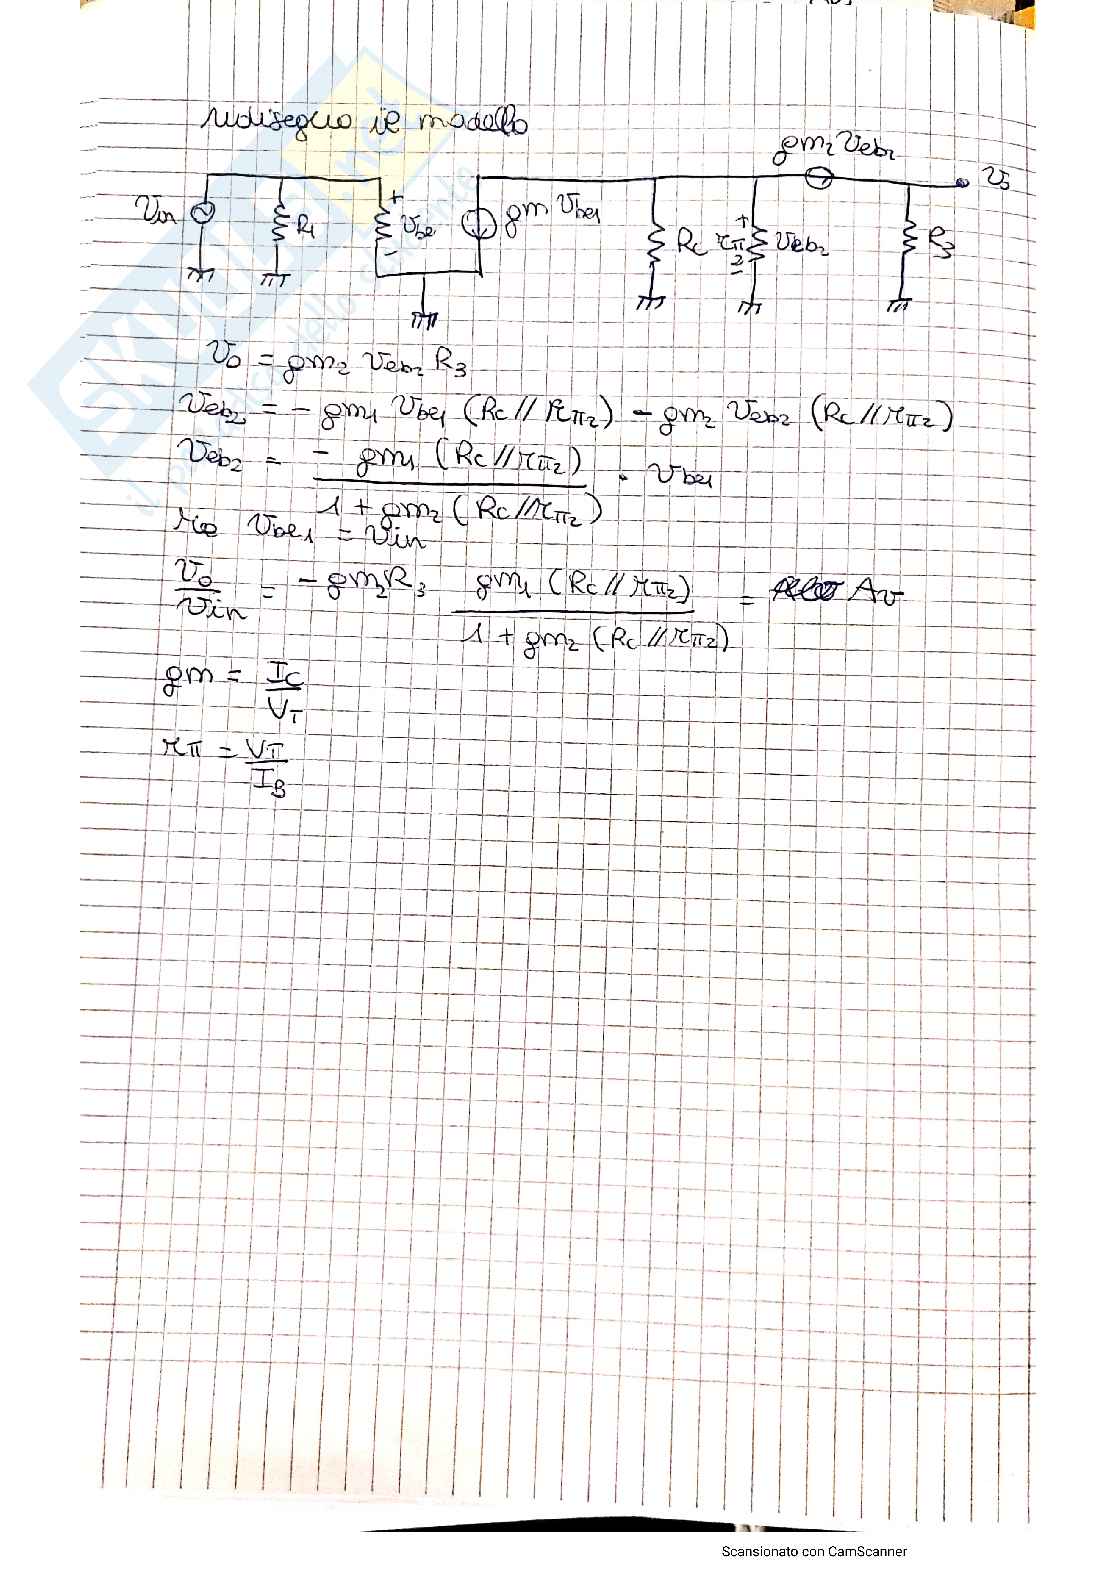 ridisegno il modello
gm₂ Veb₂
Vin
R₁
+
Vbe
-
gm Vbe₁
Rc
rπ2
+
-
Veb₂
R₃
Vo
Vo = gm₂ Veb₂ R₃
Veb₂ = - gm₁ Vbe₁ (Rc // rπ2) - gm₂ Veb₂ (Rc // rπ2)
Veb₂ = - gm₁ (Rc // rπ2) / 1 + gm₂ (Rc // rπ2) · Vbe₁
Vbe₁ = Vin
Vo / Vin = - gm₂ R₃ gm₁ (Rc // rπ2) / 1 + gm₂ (Rc // rπ2) = Av
gm = Ic / VT
rπ = VT / IB
Scansionato con CamScanner